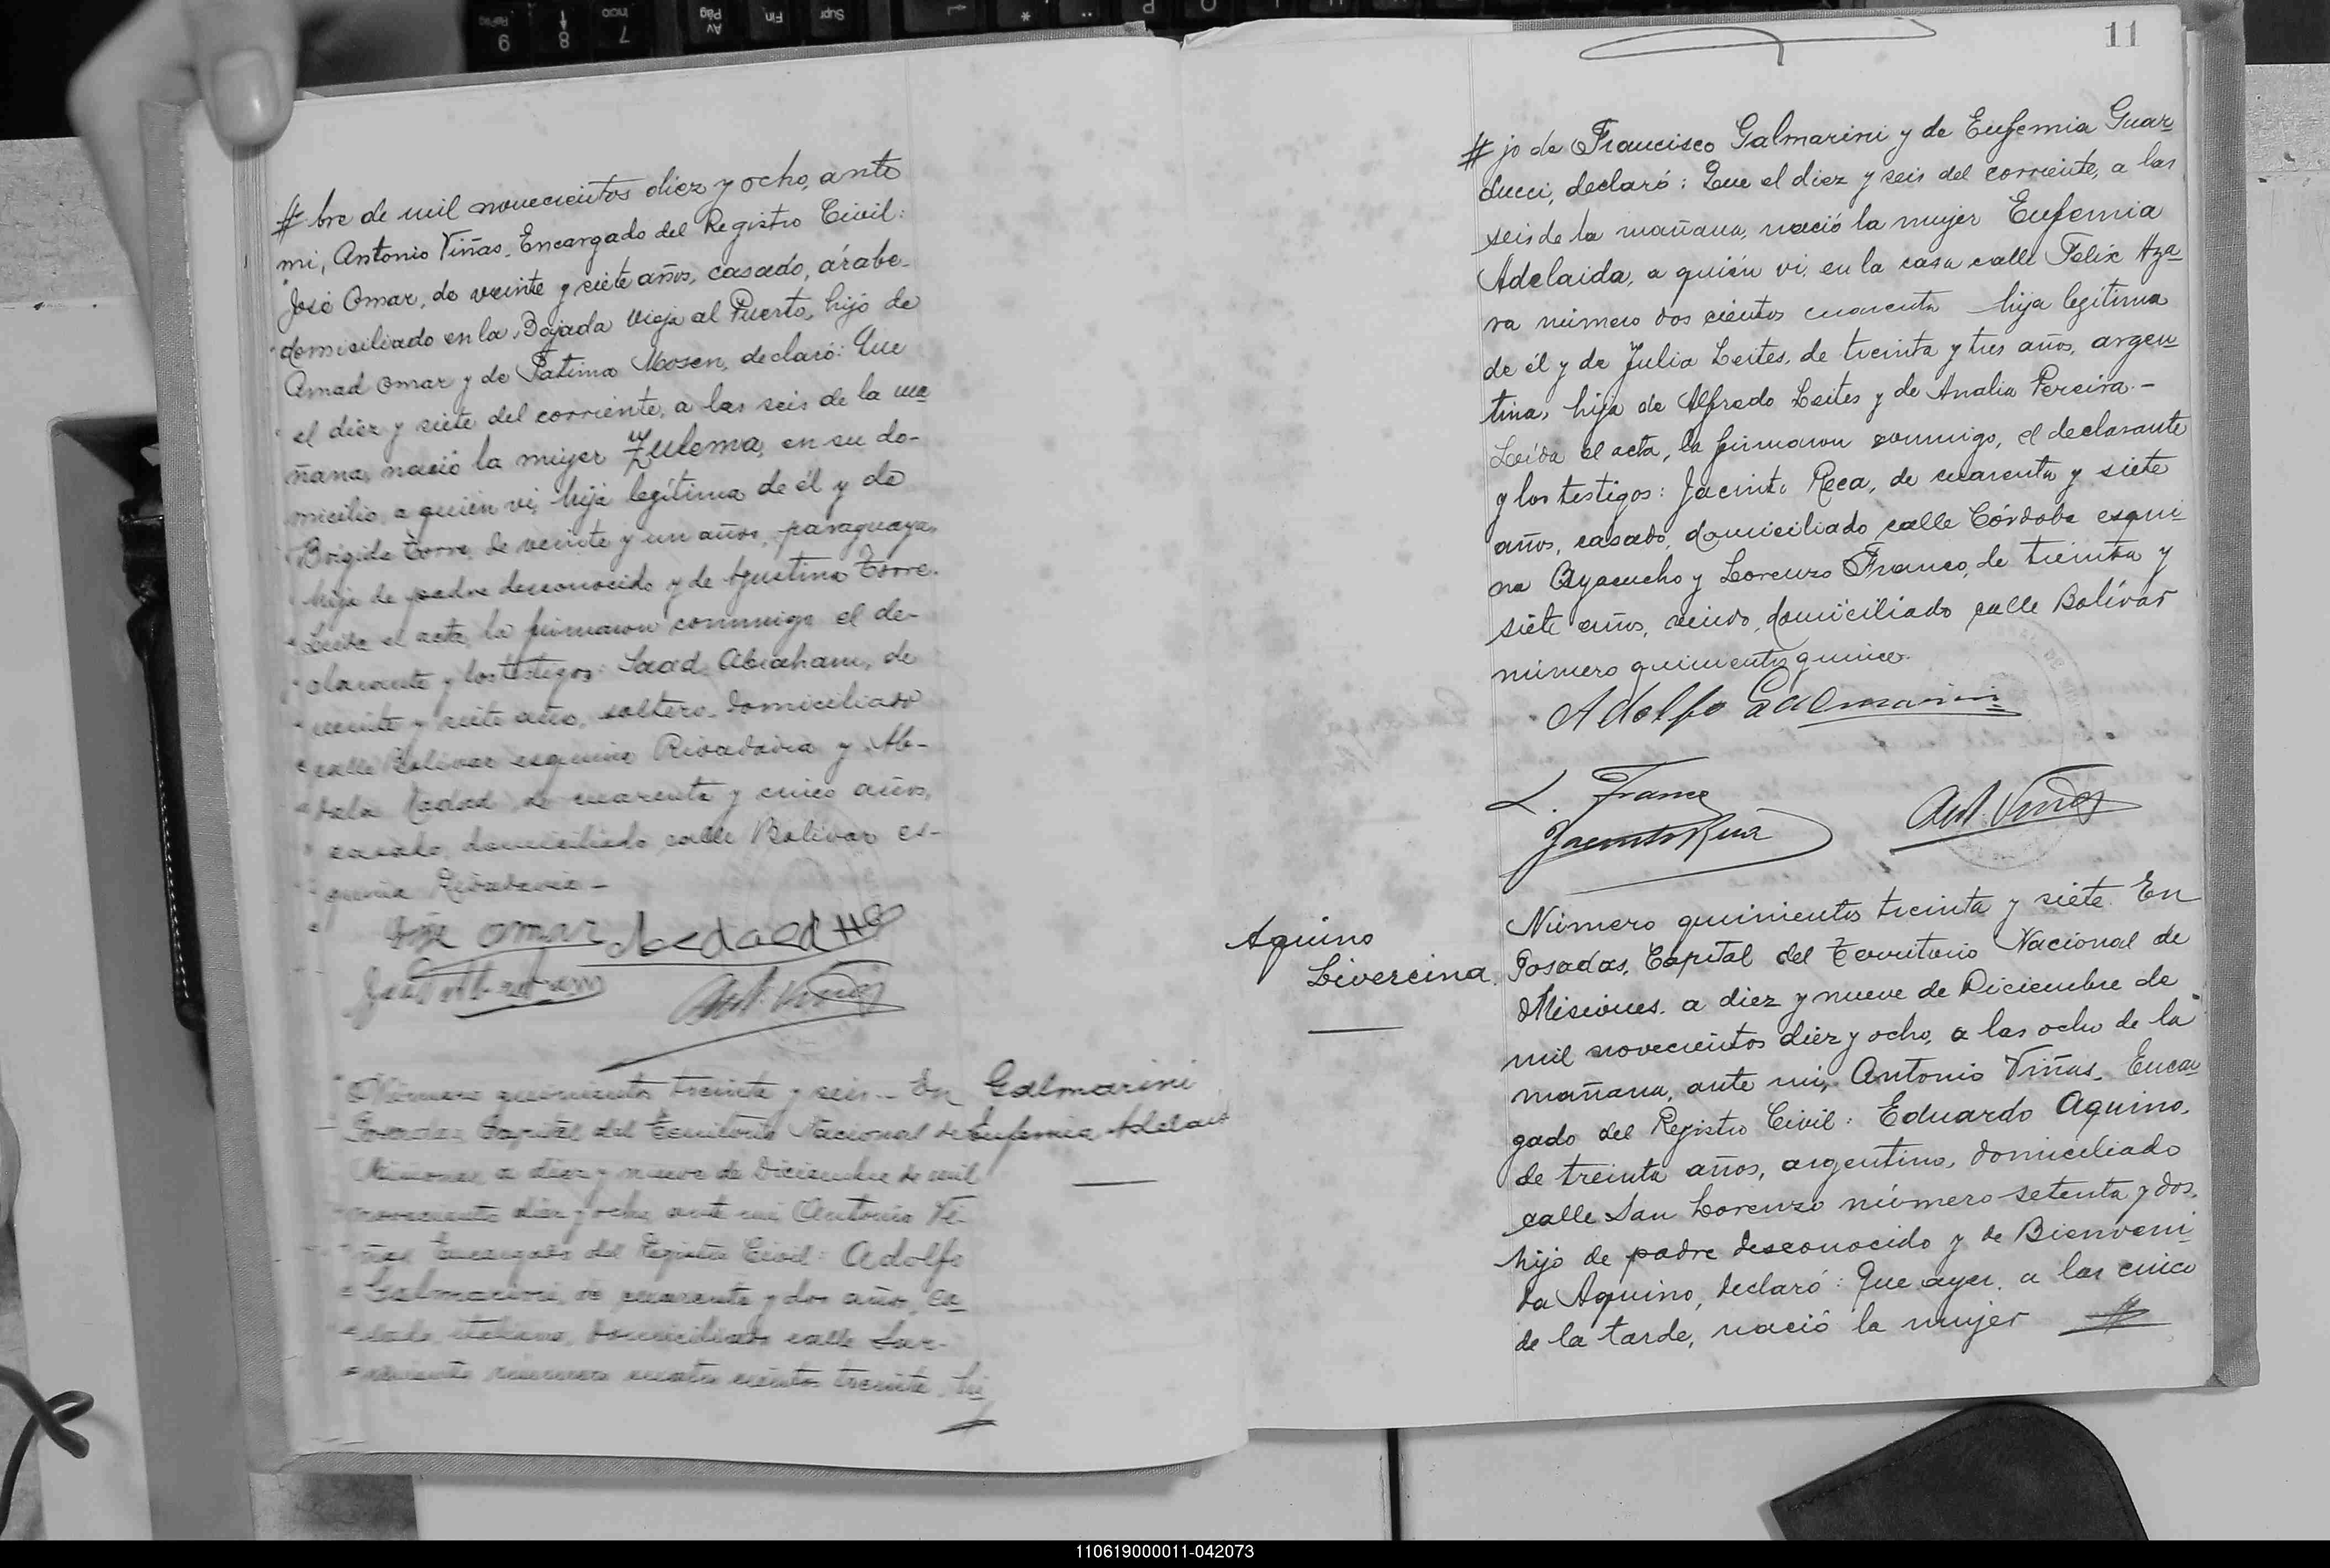 # bre de mil novecientos diez y ocho, ante
mi, Antonio Viñas, Encargado del Registro Civil:
José Omar, de veinte y siete años, casado, árabe,
domiciliado en la Bajada Vieja al Puerto, hijo de
Amad Omar y de Fatima Mosen, declaró: Que
el diez y siete del corriente, a las seis de la ma
ñana, nació la mujer Zulema, en su do-
micilio, a quién vi, hija legítima de él y de
Brigida Torre, de veinte y un años, paraguaya,
hija de padre desconocido y de Agustina Torre.
Leida el acta, la firmaron conmigo el de-
clarante y los testigos: Saad Abraham, de
veinte y siete años, soltero, domiciliado
calle Bolivar esquina Rivadavia y Ab-
dala Dadad, de cuarenta y cinco años,
casado, domiciliado calle Bolivar es-
quina Rivadavia -
José Omar
Ant. Viñas
Número quinientos treinta y seis - En
Posadas, Capital del Territorio Nacional de
Misiones, a diez y nueve de Diciembre de mil
novecientos diez y ocho, ante mi, Antonio Vi-
ñas Encargado del Registro Civil: Adolfo
Galmarini, de cuarenta y dos años, ca
sado, italiano, domiciliado calle Sar-
miento número cuatro cientos treinta, hi
Galmarini
Eufemia Adelaid
11
# jo de Francisco Galmarini y de Eufemia Guar
ducci, declaró: Que el diez y seis del corriente, a las
seis de la mañana, nació la mujer Eufemia
Adelaida, a quién vi, en la casa calle Felix Aza
ra número dos cientos cuarenta hija legítima
de él y de Julia Leites, de treinta y tres años, argen
tina, hija de Alfredo Leites y de Analia Pereira.-
Leída el acta, la firmaron conmigo, el declarante
y los testigos: Jacinto Reca, de cuarenta y siete
años, casado, domiciliado calle Córdoba esqui
na Ayacucho y Lorenzo Franco, de treinta y
siete años, viudo, domiciliado calle Bolívar
número quinientos quince.
Adolfo Galmarini
L. Franco
Jacinto Reca
Ant. Viñas
Aquino
Livercina.
Número quinientos treinta y siete. En
Posadas, Capital del Territorio Nacional de
Misiones, a diez y nueve de Diciembre de
mil novecientos diez y ocho, a las ocho de la
mañana, ante mi, Antonio Viñas, Encar
gado del Registro Civil: Eduardo Aquino,
de treinta años, argentino, domiciliado
calle San Lorenzo número setenta y dos,
hijo de padre desconocido y de Bienveni
da Aquino, declaró: Que ayer, a las cinco
de la tarde, nació la mujer #
110619000011-042073